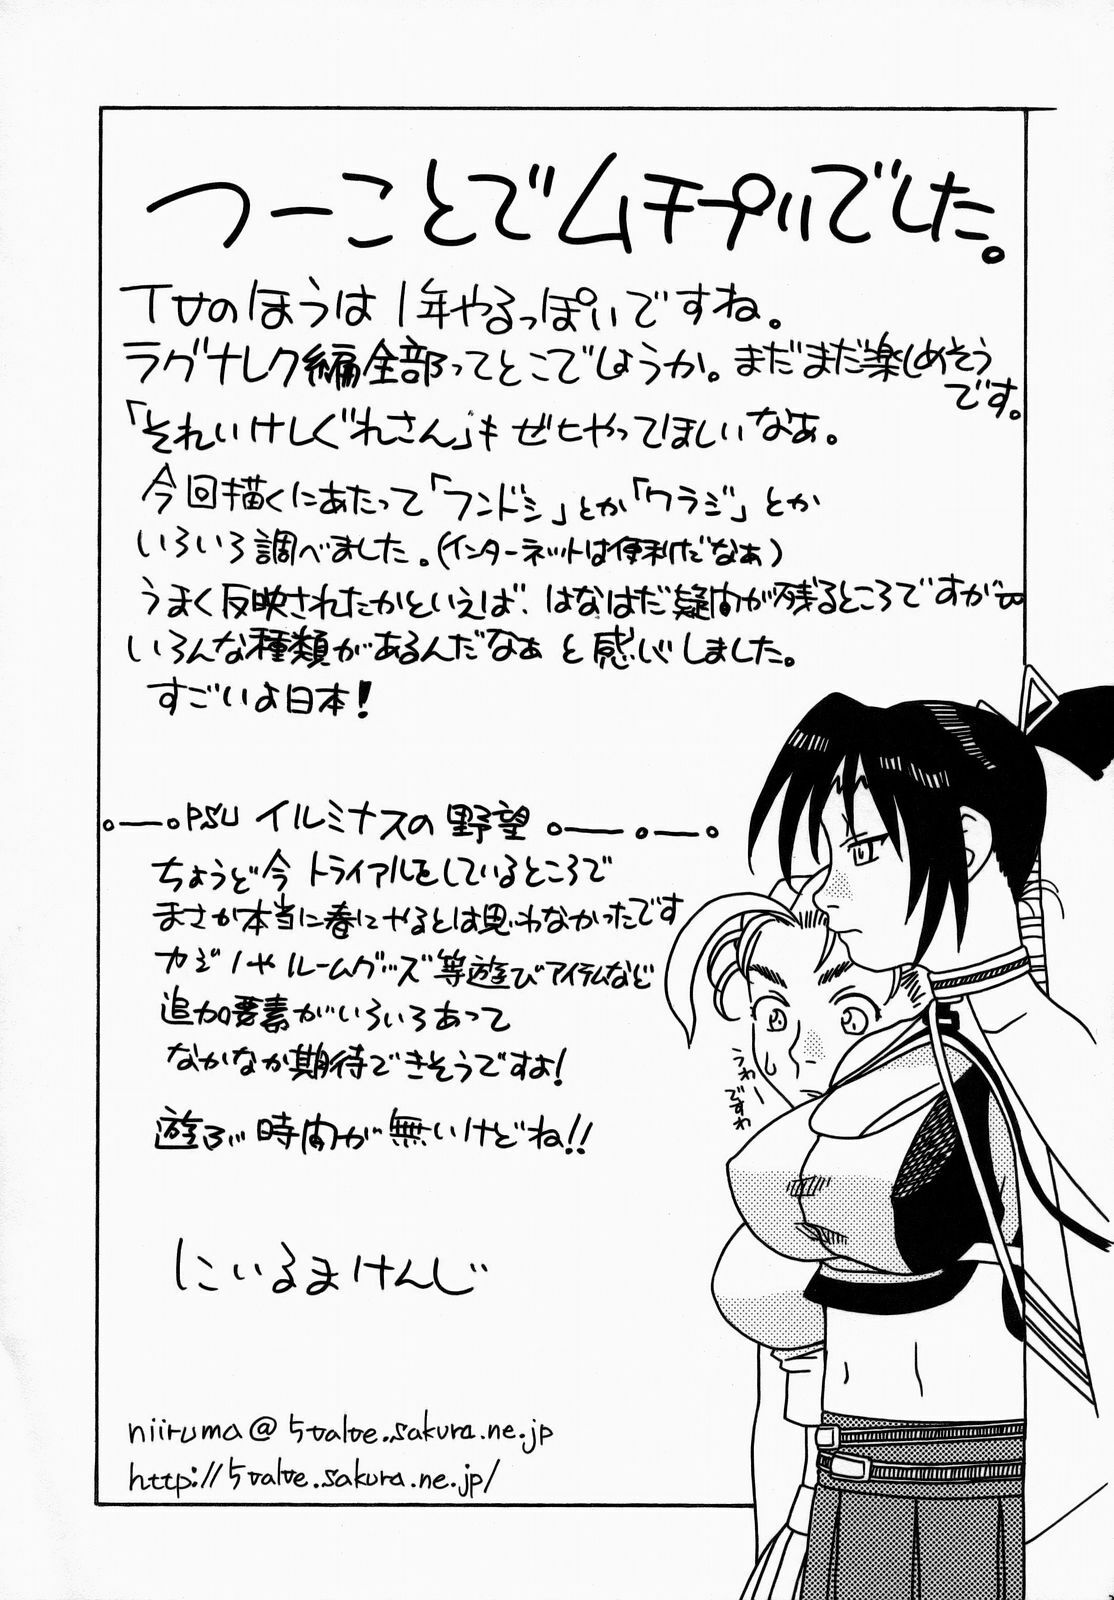 つーことでムチプリでした。
TVのほうは1年やるっぽいですね。
ラグナレク編全部ってとこでしょうか。まだまだ楽しめそう
です。
「それいけしぐれさん」もぜヒやってほしいなぁ。
今回描くにあたって「フンドシ」とか「ワラジ」とか
いろいろ調べました。(インターネットは便利だなぁ)
うまく反映されたかといえば、はなはだ疑問が残るところですが
いろんな種類があるんだなぁと感じしました。
すごいよ日本!
PSU イルミナスの野望
ちょうど今トライアルをしているところで
まさか本当に春にやるとは思わなかったです
カジノやルームグッズ等遊びアイテムなど
追加要素がいろいろあって
なかなか期待できそうですよ!
遊ぶ時間が無いけどね!!
うわー
ですわ
にいるまけんじ
niiruma@5valve.sakura.ne.jp
http://5valve.sakura.ne.jp/